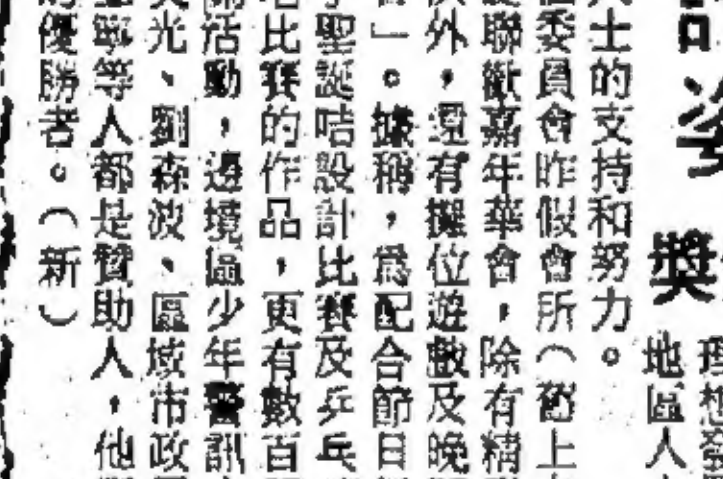 獎
地區人
士的支持和努力。
委員會昨假會所（
聯歡嘉年華會，除有精
外，還有攤位遊戲及晚
」。據稱，為配合節目
聖誕咭設計比賽及乒乓
比賽的作品，更有數百
活動，邊境區少年警訊
光、劉森波、區域市政
寧等人都是贊助人，他
優勝者。（新）